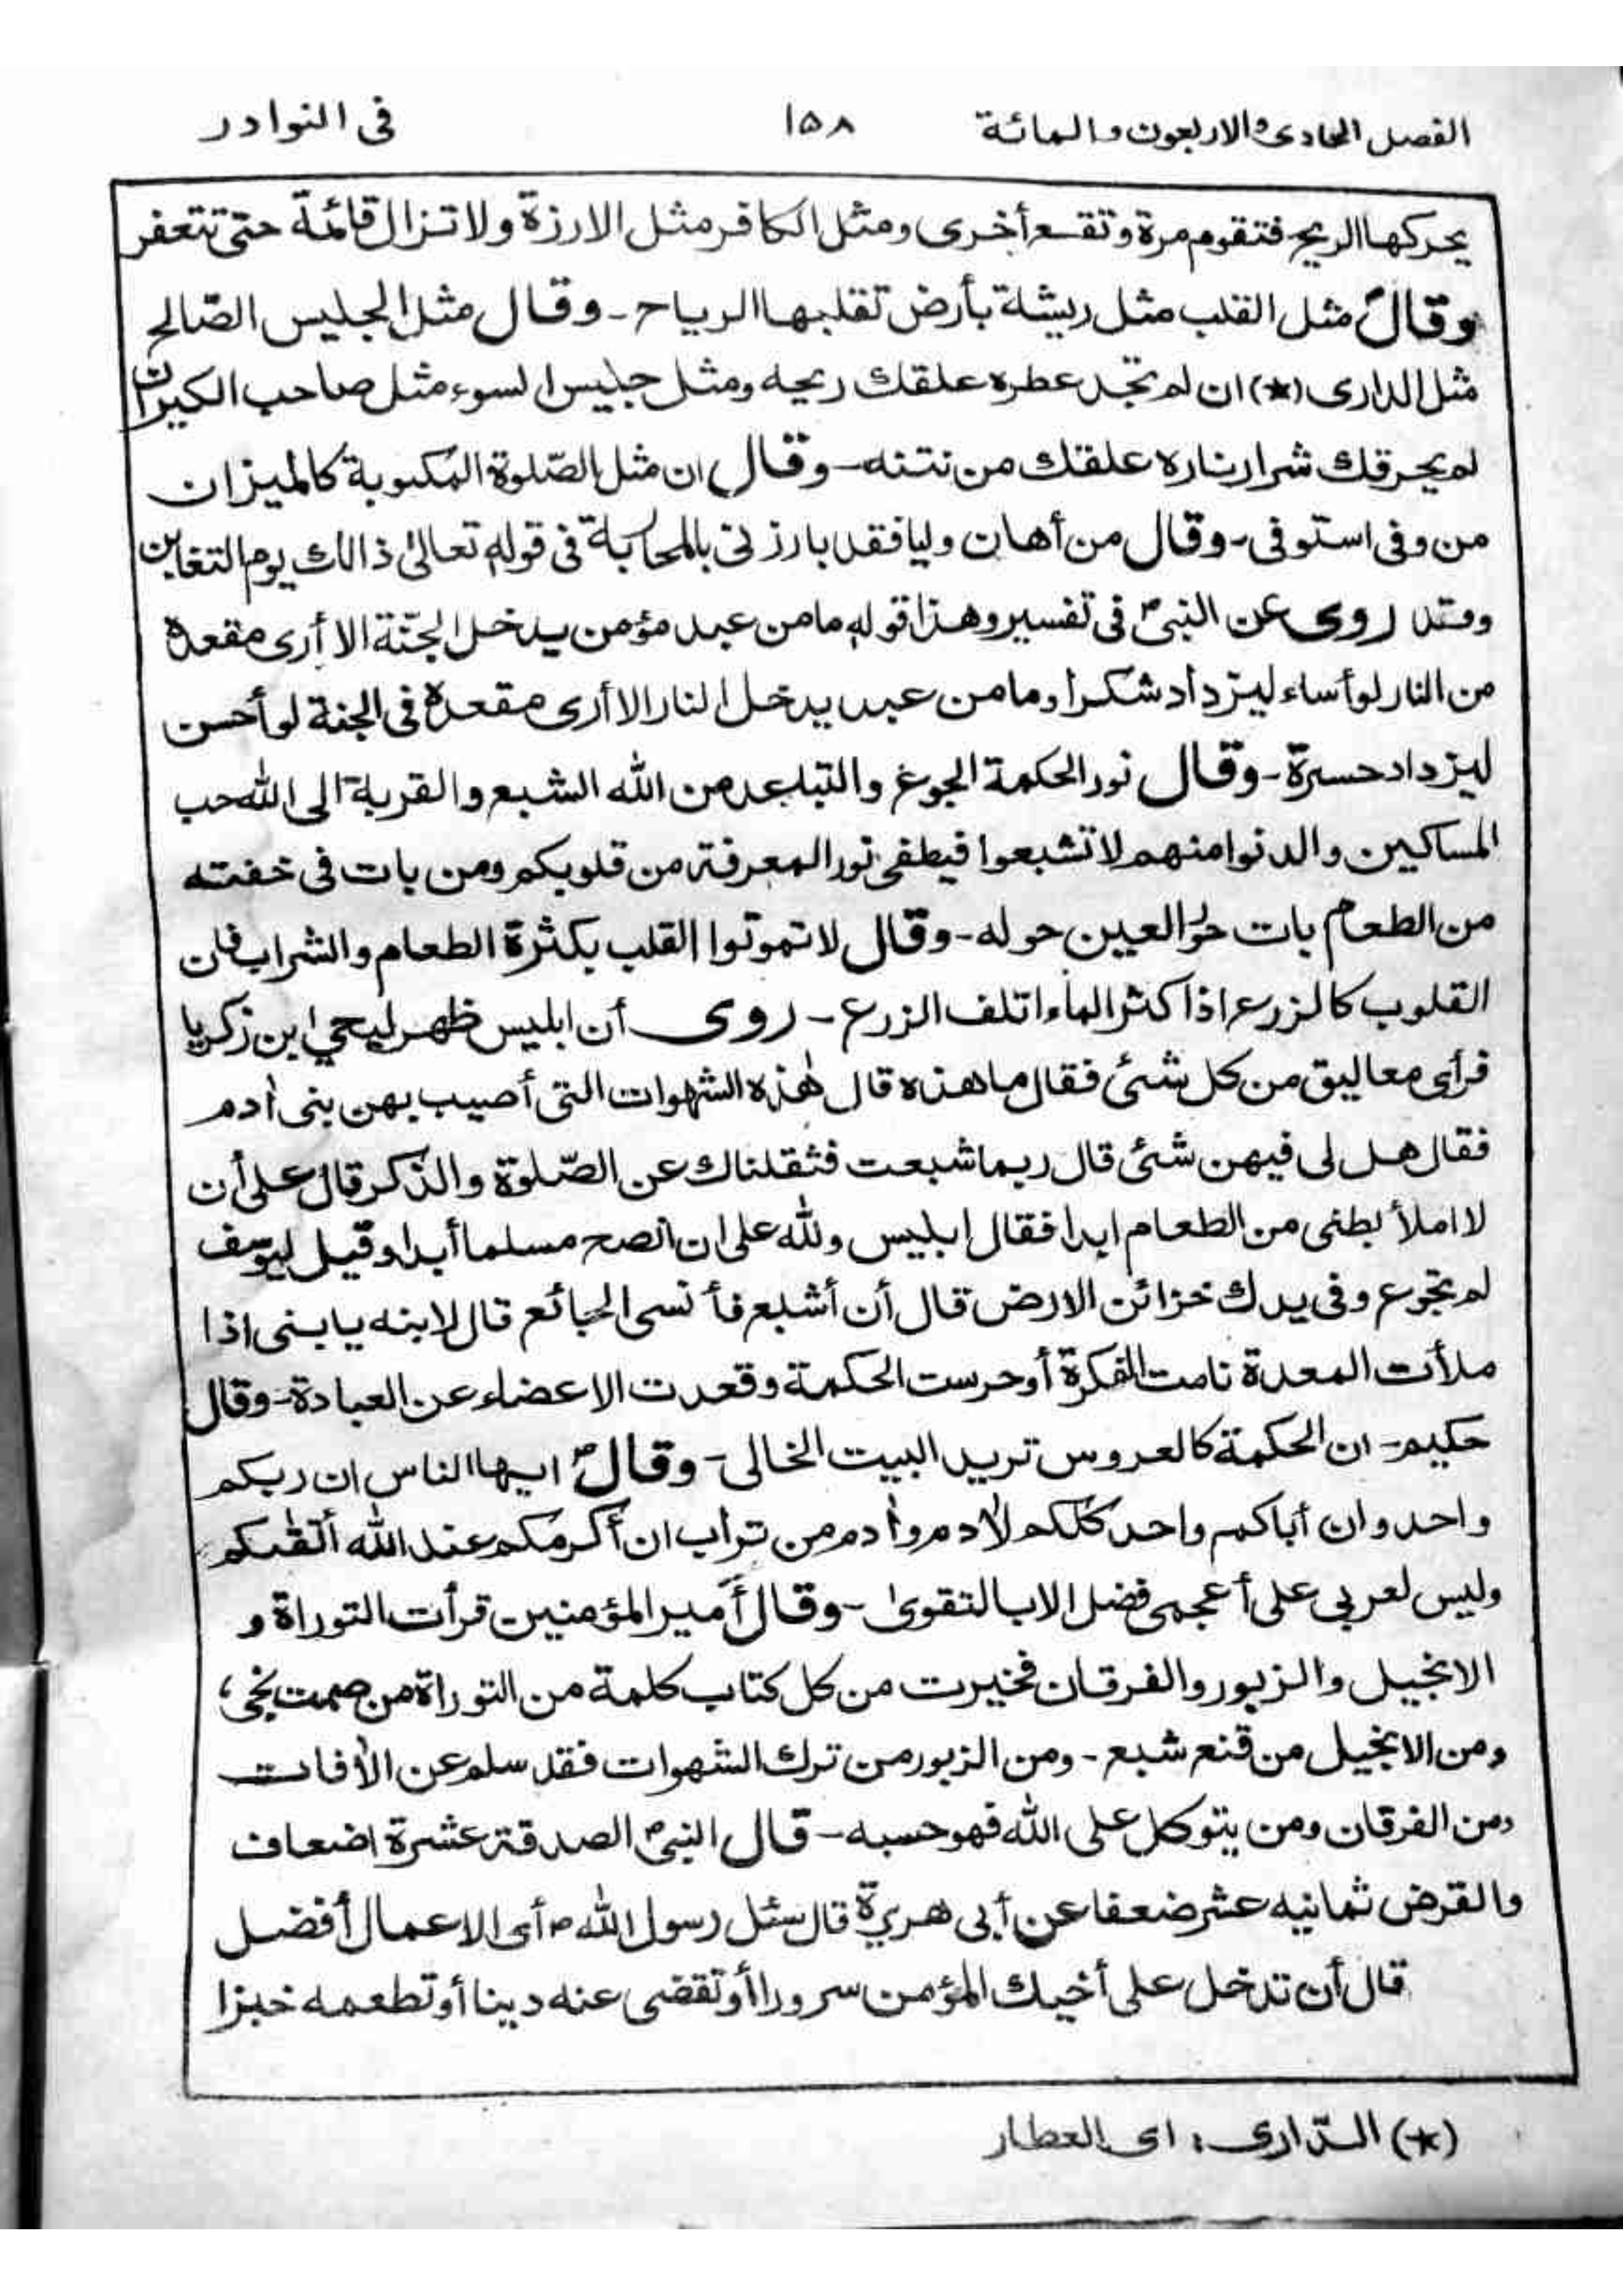 الفصل الحادى والاربعون والمائة ١٥٨ فى النوادر
يحركها الريح فتقوم مرة وتقع أخرى ومثل الكافر مثل الارزة ولا تزال قائمة حتى تتعفر
وقالؐ مثل القلب مثل ريشة بأرض تقلبها الرياح - وقال مثل الجليس الصّالح
مثل الدارى (*) ان لم تجد عطره علقك ريحه ومثل جليس السوء مثل صاحب الكير ان
لم يحرقك شرار ناره علقك من نتنه - وقال ان مثل الصّلوة المكتوبة كالميزان
من وفى استوفى - وقال من أهان وليا فقد بارزنى بالمحاربة فى قوله تعالىٰ ذالك يوم التغابن
وقد روى عن النبىؐ فى تفسير وهذا قوله مامن عبد مؤمن يدخل الجنّة الا أرى مقعدة
من النار لو أساء ليزداد شكرا وما من عبد يدخل النار الا أرى مقعدة فى الجنة لو أحسن
ليزداد حسرة - وقال نور الحكمة الجوع والتباعد من الله الشبع والقربة الى الله حب
المساكين والدنوا منهم لا تشبعوا فيطفى نور المعرفة من قلوبكم ومن بات فى خفته
من الطعام بات حُوْر العين حوله - وقال لا تموتوا القلب بكثرة الطعام والشراب فان
القلوب كالزرع اذا كثر الماء اتلف الزرع - روى أن ابليس ظهر ليحي ابن زكريا
فرأى معاليق من كل شئى فقال ما هذه قال هٰذه الشهوات التى أصيب بهن بنى اٰدم
فقال هل لى فيهن شئى قال ربما شبعت فثقلناك عن الصّلوة والذّكر قال على أن
لا املأ بطنى من الطعام ابدا فقال ابليس ولله على ان انصح مسلما أبدا وقيل ليوسف
لم تجوع وفى يدك خزائن الارض قال أن أشبع فأنسى الجائع قال لابنه يا بنى اذا
ملأت المعدة نامت الفكرة أو حرست الحكمة وقعدت الاعضاء عن العبادة - وقال
حكيم - ان الحكمة كالعروس تريد البيت الخالى - وقالؐ ايها الناس ان ربكم
واحد وان أباكم واحد كلكم لاٰدم واٰدم من تراب ان أكرمكم عند الله أتقٰىكم
وليس لعربى على أعجمى فضل الا بالتقوىٰ - وقال أمير المؤمنين قرأت التوراة و
الانجيل والزبور والفرقان فخيرت من كل كتاب كلمة من التوراة من صمت نجى،
ومن الانجيل من قنع شبع - ومن الزبور من ترك الشهوات فقد سلم عن الاٰفات
ومن الفرقان ومن يتوكل على الله فهو حسبه - قال النبىؐ الصدقة عشرة اضعاف
والقرض ثمانيه عشر ضعفا عن أبى هريرة قال سئل رسول اللهؐ أى الاعمال أفضل
قال أن تدخل على أخيك المؤمن سرورا أو تقضى عنه دينا أو تطعمه خبزا
(*) الدّارى: اى العطار